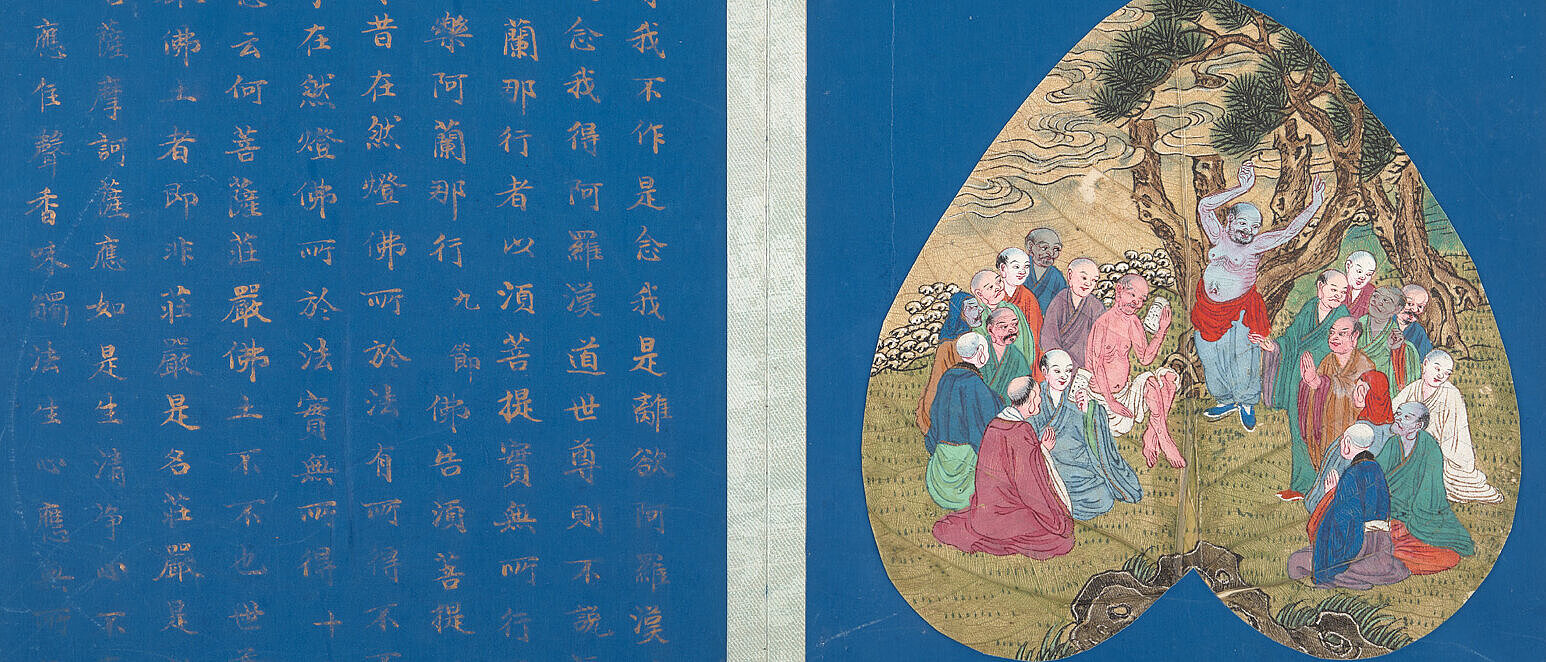 我不作是念我是離欲阿羅漢
念我得阿羅漢道世尊則不說
蘭那行者以須菩提實無所行
樂阿蘭那行九節佛告須菩提
昔在然燈佛所於法有所得不
在然燈佛所於法實無所得十
云何菩薩莊嚴佛土不不也世
佛土者即非莊嚴是名莊嚴是
薩摩訶薩應如是生清淨心不
應住聲香味觸法生心應無所